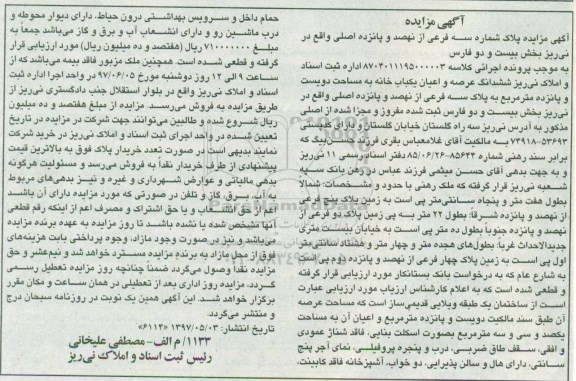 آگهی مزایده
آگهی مزایده پلاک شماره سه فرعی از نهصد و پانزده اصلی واقع در
نی‌ریز بخش بیست و دو فارس
به موجب پرونده اجرائی کلاسه ۸۷۰۴۰۰۱۱۹۵۰۰۰۰۳ اداره ثبت اسناد
و املاک نی‌ریز ششدانگ عرصه و اعیان یکباب خانه به مساحت دویست
و پانزده مترمربع به پلاک سه فرعی از نهصد و پانزده اصلی واقع در
نی‌ریز بخش بیست و دو فارس ثبت شده مفروز و مجزا شده از اصلی
مذکور به آدرس نی‌ریز سه راه گلستان خیابان گلستان و دارای کدپستی
۷۴۹۱۸-۵۳۶۹۳ به مالکیت آقای غلامعباس بقری فرزند بیک که
برابر سند رهنی شماره ۸۵۶۲۴-۸۵/۰۶/۲۶ دفتر اسناد رسمی ۱۱ نی‌ریز
و به جهت بدهی آقای حسن میثمی فرزند عباس در رهن بانک سپه
شعبه نی‌ریز قرار گرفته که ملک رهنی با حدود و مشخصات: شمالاً
بطول هفت متر و پنجاه سانتی‌متر پی است به زمین پلاک دو فرعی
از نهصد و پانزده شرقاً: بطول ۲۲ متر به پی زمین پلاک دو فرعی از
نهصد و پانزده جنوباً بطول ده متر پی است به خیابان بیست متری
جدیدالاحداث غرباً: بطول‌های هجده متر و چهار متر و هشتاد سانتی‌متر
اول پی است به زمین پلاک چهار فرعی از نهصد و پانزده دوم پی است
به شارع عام که به درخواست بانک بستانکار مورد ارزیابی قرار گرفته
و قطعی شده است که به اعلام کارشناس ارزیاب مورد ارزیابی عبارت
است از ساختمان یک طبقه ویلایی قدیمی‌ساز است که مساحت عرصه
آن طبق سند مالکیت دویست و پانزده مترمربع و اعیان آن به مساحت
یکصد و سی و سه مترمربع بصورت اسکلت بنایی، فاقد شناژ عمودی
و افقی، سقف طاق ضربی، درب و پنجره پروفیلی، نمای آجر پنج
سانتی، دارای هال و سالن پذیرایی، دو خواب، آشپزخانه فاقد کابینت،
حمام داخل و سرویس بهداشتی درون حیاط، دارای دیوار محوطه و
درب ماشین رو و دارای انشعاب آب و برق و گاز می‌باشد جمعاً به
مبلغ ۷۱۰۰۰۰۰۰۰ ریال (هفتصد و ده میلیون ریال) مورد ارزیابی قرار
گرفته و قطعی شده است. همچنین ملک مزبور فاقد بیمه می‌باشد که از
ساعت ۹ الی ۱۲ روز دوشنبه مورخ ۹۷/۰۶/۰۵ در واحد اجرا اداره ثبت
اسناد و املاک نی‌ریز واقع در بلوار استقلال جنب دادگستری نی‌ریز از
طریق مزایده به فروش می‌رسد. مزایده از مبلغ هفتصد و ده میلیون
ریال شروع شده و طالبین می‌توانند جهت شرکت در مزایده در تاریخ
تعیین شده در واحد اجرای ثبت اسناد و املاک نی‌ریز در خرید شرکت
نمایند بدیهی است در صورت تعدد خریدار پلاک فوق به بالاترین قیمت
پیشنهادی از طرف خریدار نقداً به فروش می‌رسد و مسئولیت هرگونه
بدهی مالیاتی و عوارض شهرداری و غیره و نیز بدهی‌های مربوط
به آب، برق، گاز و تلفن در صورتی که مورد مزایده دارای آن باشد
اعم از حق انشعاب و یا حق اشتراک و مصرف اعم از اینکه رقم قطعی
آنها مشخص شده یا نشده باشد تا روز مزایده به عهده برنده مزایده
می‌باشد و نیز در صورت وجود مازاد، وجوه پرداختی بابت هزینه‌های
فوق از محل مازاد به برنده مزایده مسترد خواهد شد و نیم‌عشر و حق
مزایده نقداً وصول می‌گردد ضمناً چنانچه روز مزایده تعطیل رسمی
گردد، مزایده روز اداری بعد از تعطیلی در همان ساعت و مکان مقرر
برگزار خواهد شد. این آگهی همین یک نوبت در روزنامه سبحان درج
و منتشر می‌گردد.
تاریخ انتشار: ۱۳۹۷/۰۵/۰۳ «۶۱۱۳»
۱۱۳۳/ م الف- مصطفی علیخانی
رئیس ثبت اسناد و املاک نی‌ریز